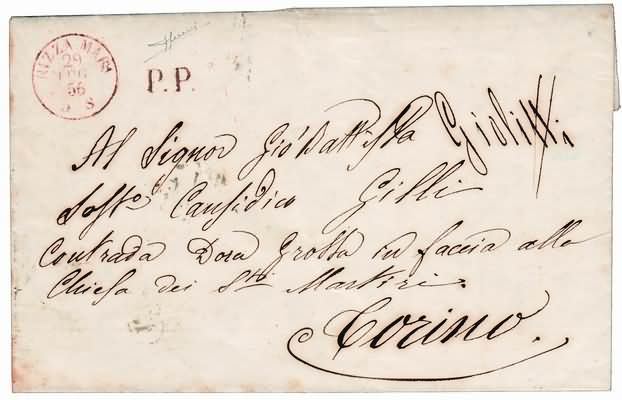 NIZZA MAR.
29
56
P.P.
Al Signor Gio Battista Giolitti
Sosto Causidico Gilli
Contrada Dora Grossa in faccia alla
Chiesa dei Sti Martiri.
Torino.